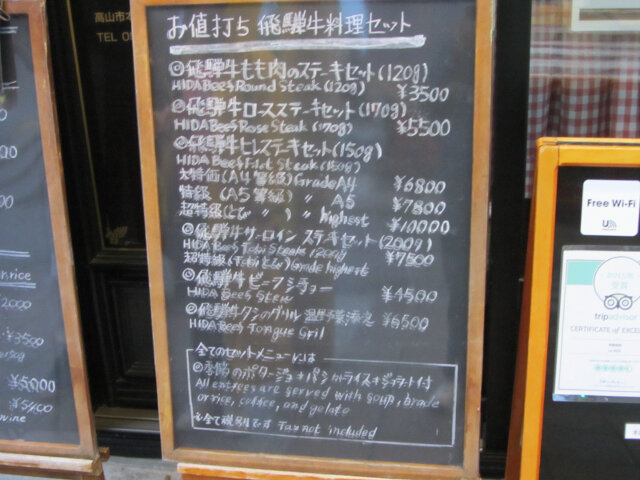 高山市
TEL
お値打ち 飛騨牛料理セット
◎飛騨牛もも肉のステーキセット(120g)
HIDA Beef Round Steak (120g) ¥3500
◎飛騨牛ロースステーキセット(170g)
HIDA Beef Rose Steak (170g) ¥5500
◎飛騨牛ヒレステーキセット(150g)
HIDA Beef Filet Steak (150g)
大特価(A4等級) Grade A4 ¥6800
特級(A5等級) 〃 A5 ¥7800
超特級( 〃 ) 〃 highest ¥10000
◎飛騨牛サーロインステーキセット(200g)
HIDA Beef Steak (200g) ¥7500
超特級 Grade highest
◎飛騨牛ビーフシチュー
HIDA Beef Stew ¥4500
◎飛騨牛タンのグリル 温野菜添え ¥6500
HIDA Beef Tongue Gril
全てのセットメニューには
◎季節のポタージュ+パンorライス+ジェラート付
All entrees are served with soup, brade
or rice, coffee, and gelato
※全て税別です Tax not included
or.rice
2000
¥3500
¥5000
¥5400
Free Wi-Fi
tripadvisor
CERTIFICATE of EXCELLENCE